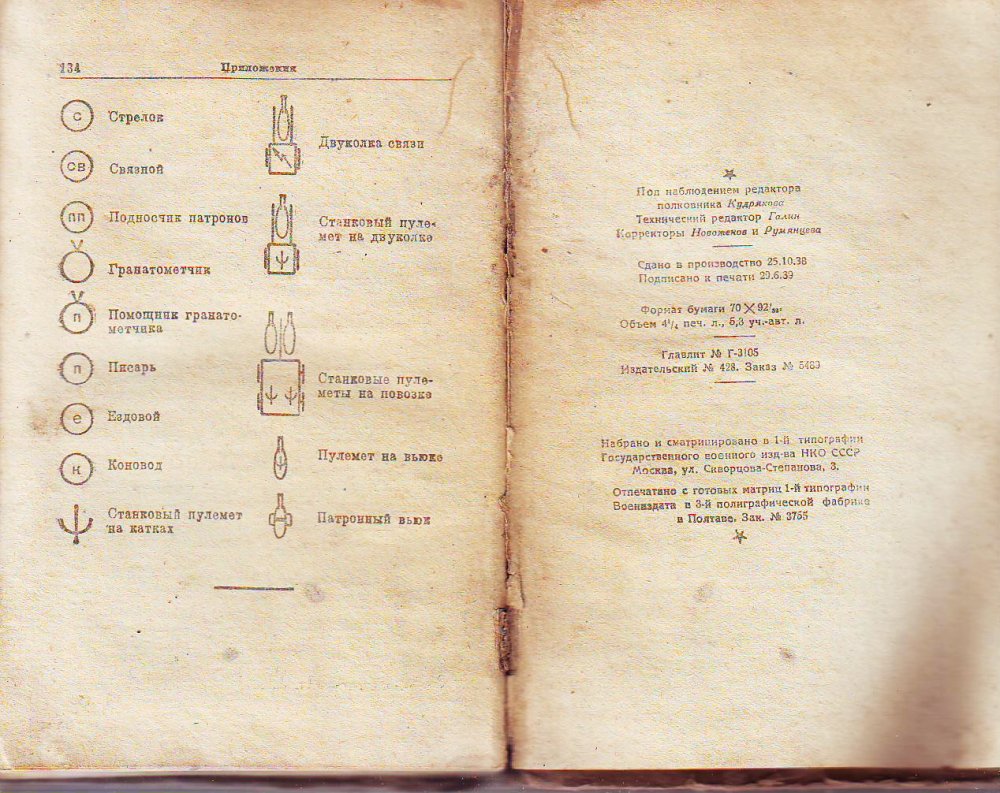 134
Приложения
С
Стрелок
СВ
Связной
ПП
Подносчик патронов
Гранатометчик
П
Помощник гранато-
метчика
П
Писарь
е
Ездовой
К
Коновод
Станковый пулемет
на катках
Двуколка связи
Станковый пуле-
мет на двуколке
Станковые пуле-
меты на повозке
Пулемет на вьюке
Патронный вьюк
Под наблюдением редактора
полковника Кудрякова
Технический редактор Галин
Корректоры Новоженов и Румянцева
Сдано в производство 25.10.38
Подписано к печати 29.6.39
Формат бумаги 70×92¹/₃₂.
Объем 4¹/₄ печ. л., 5,3 уч.-авт. л.
Главлит № Г-3105
Издательский № 428. Заказ № 5483
Набрано и сматрицировано в 1-й типографии
Государственного военного изд-ва НКО СССР
Москва, ул. Скворцова-Степанова, 3.
Отпечатано с готовых матриц 1-й типографии
Воениздата в 3-й полиграфической фабрике
в Полтаве. Зак. № 3765